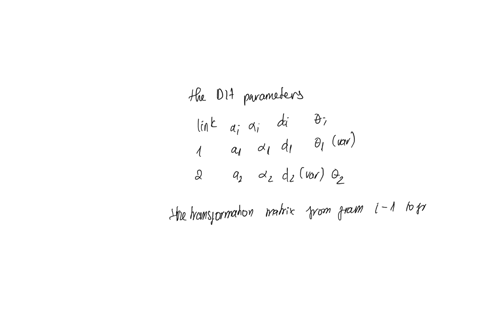 the DH parameters
link ai αi di θi
1 a1 α1 d1 θ1 (var)
2 a2 α2 d2 (var) θ2
the transformation matrix from fram i-1 to fr